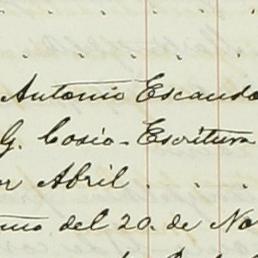 Antonio Escando
G. Cosio - Escritura
or Abril . . .
del 20. de No